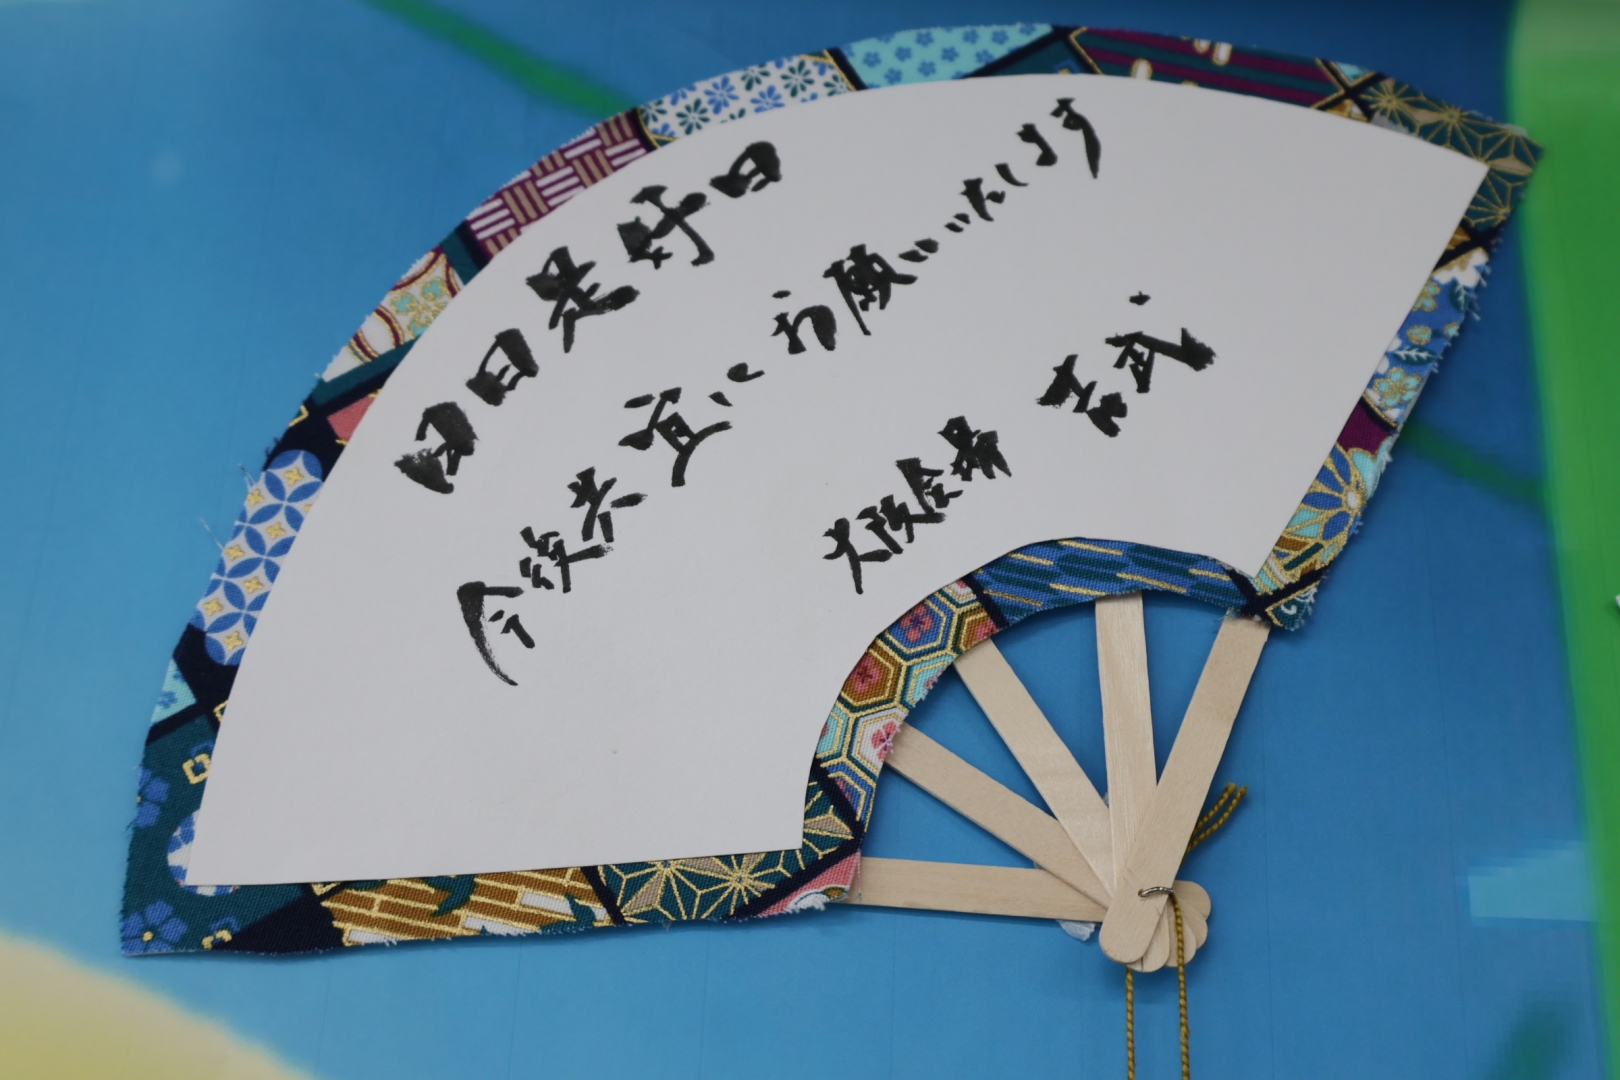 日日是好日
今後共宜しくお願いいたします
大阪会場 吉武